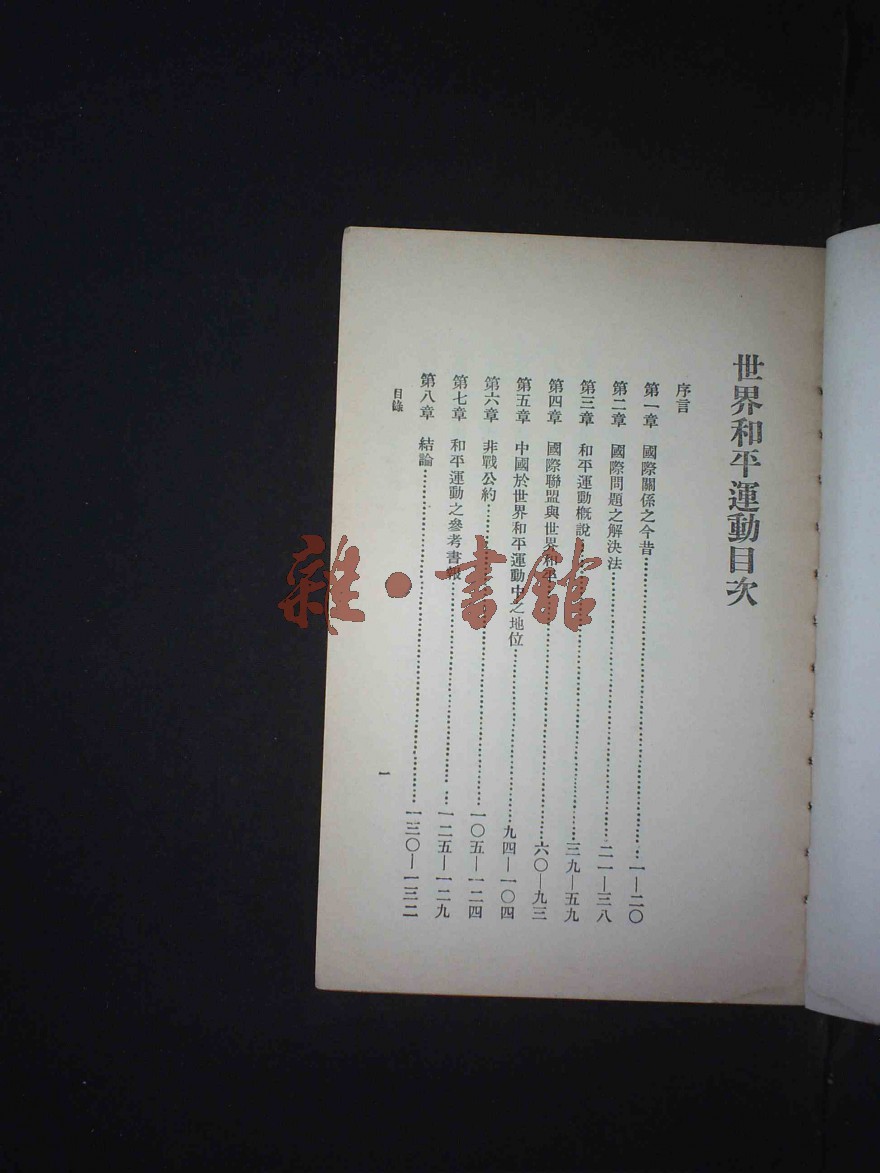 世界和平運動目次
序言
第一章 國際關係之今昔……一—二〇
第二章 國際問題之解決法……二一—三八
第三章 和平運動概說……三九—五九
第四章 國際聯盟與世界和平……六〇—九三
第五章 中國於世界和平運動中之地位……九四—一〇四
第六章 非戰公約……一〇五—一二四
第七章 和平運動之參考書報……一二五—一二九
第八章 結論……一三〇—一三二
目錄
一
雜·書館